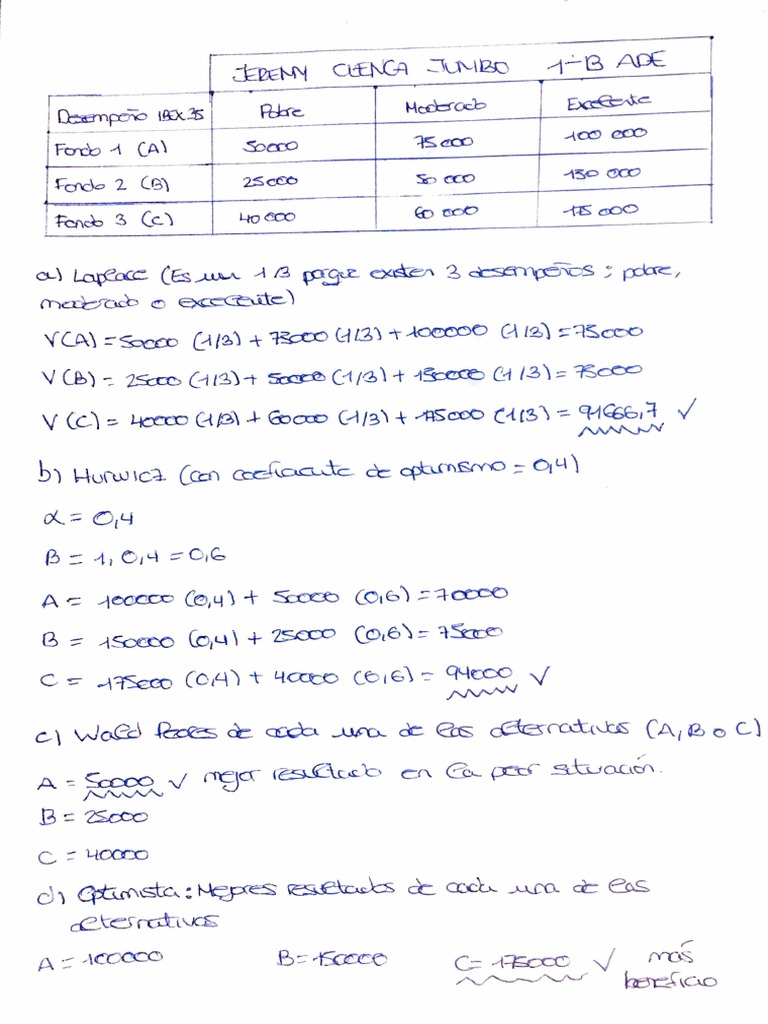 JEREMY CUENCA JUMBO 1º-B ADE
Desempeño IBEX 35 Pobre Moderado Excelente
Fondo 1 (A) 50000 75000 100 000
Fondo 2 (B) 25000 50 000 150 000
Fondo 3 (C) 40000 60 000 175 000
a) Laplace (Es un 1/3 porque existen 3 desempeños; pobre,
moderado o excelente)
V(A) = 50000 (1/3) + 75000 (1/3) + 100000 (1/3) = 75000
V(B) = 25000 (1/3) + 50000 (1/3) + 150000 (1/3) = 75000
V(C) = 40000 (1/3) + 60000 (1/3) + 175000 (1/3) = 91666,7 ✓
b) Hurwicz (con coeficiente de optimismo = 0,4)
α = 0,4
B = 1, 0,4 = 0,6
A = 100000 (0,4) + 50000 (0,6) = 70000
B = 150000 (0,4) + 25000 (0,6) = 75000
C = 175000 (0,4) + 40000 (0,6) = 94000 ✓
c) Wald peores de cada una de las alternativas (A, B o C)
A = 50000 ✓ mejor resultado en la peor situación.
B = 25000
C = 40000
d) Optimista: Mejores resultados de cada una de las
alternativas
A = 100000 B = 150000 C = 175000 ✓ más
beneficio